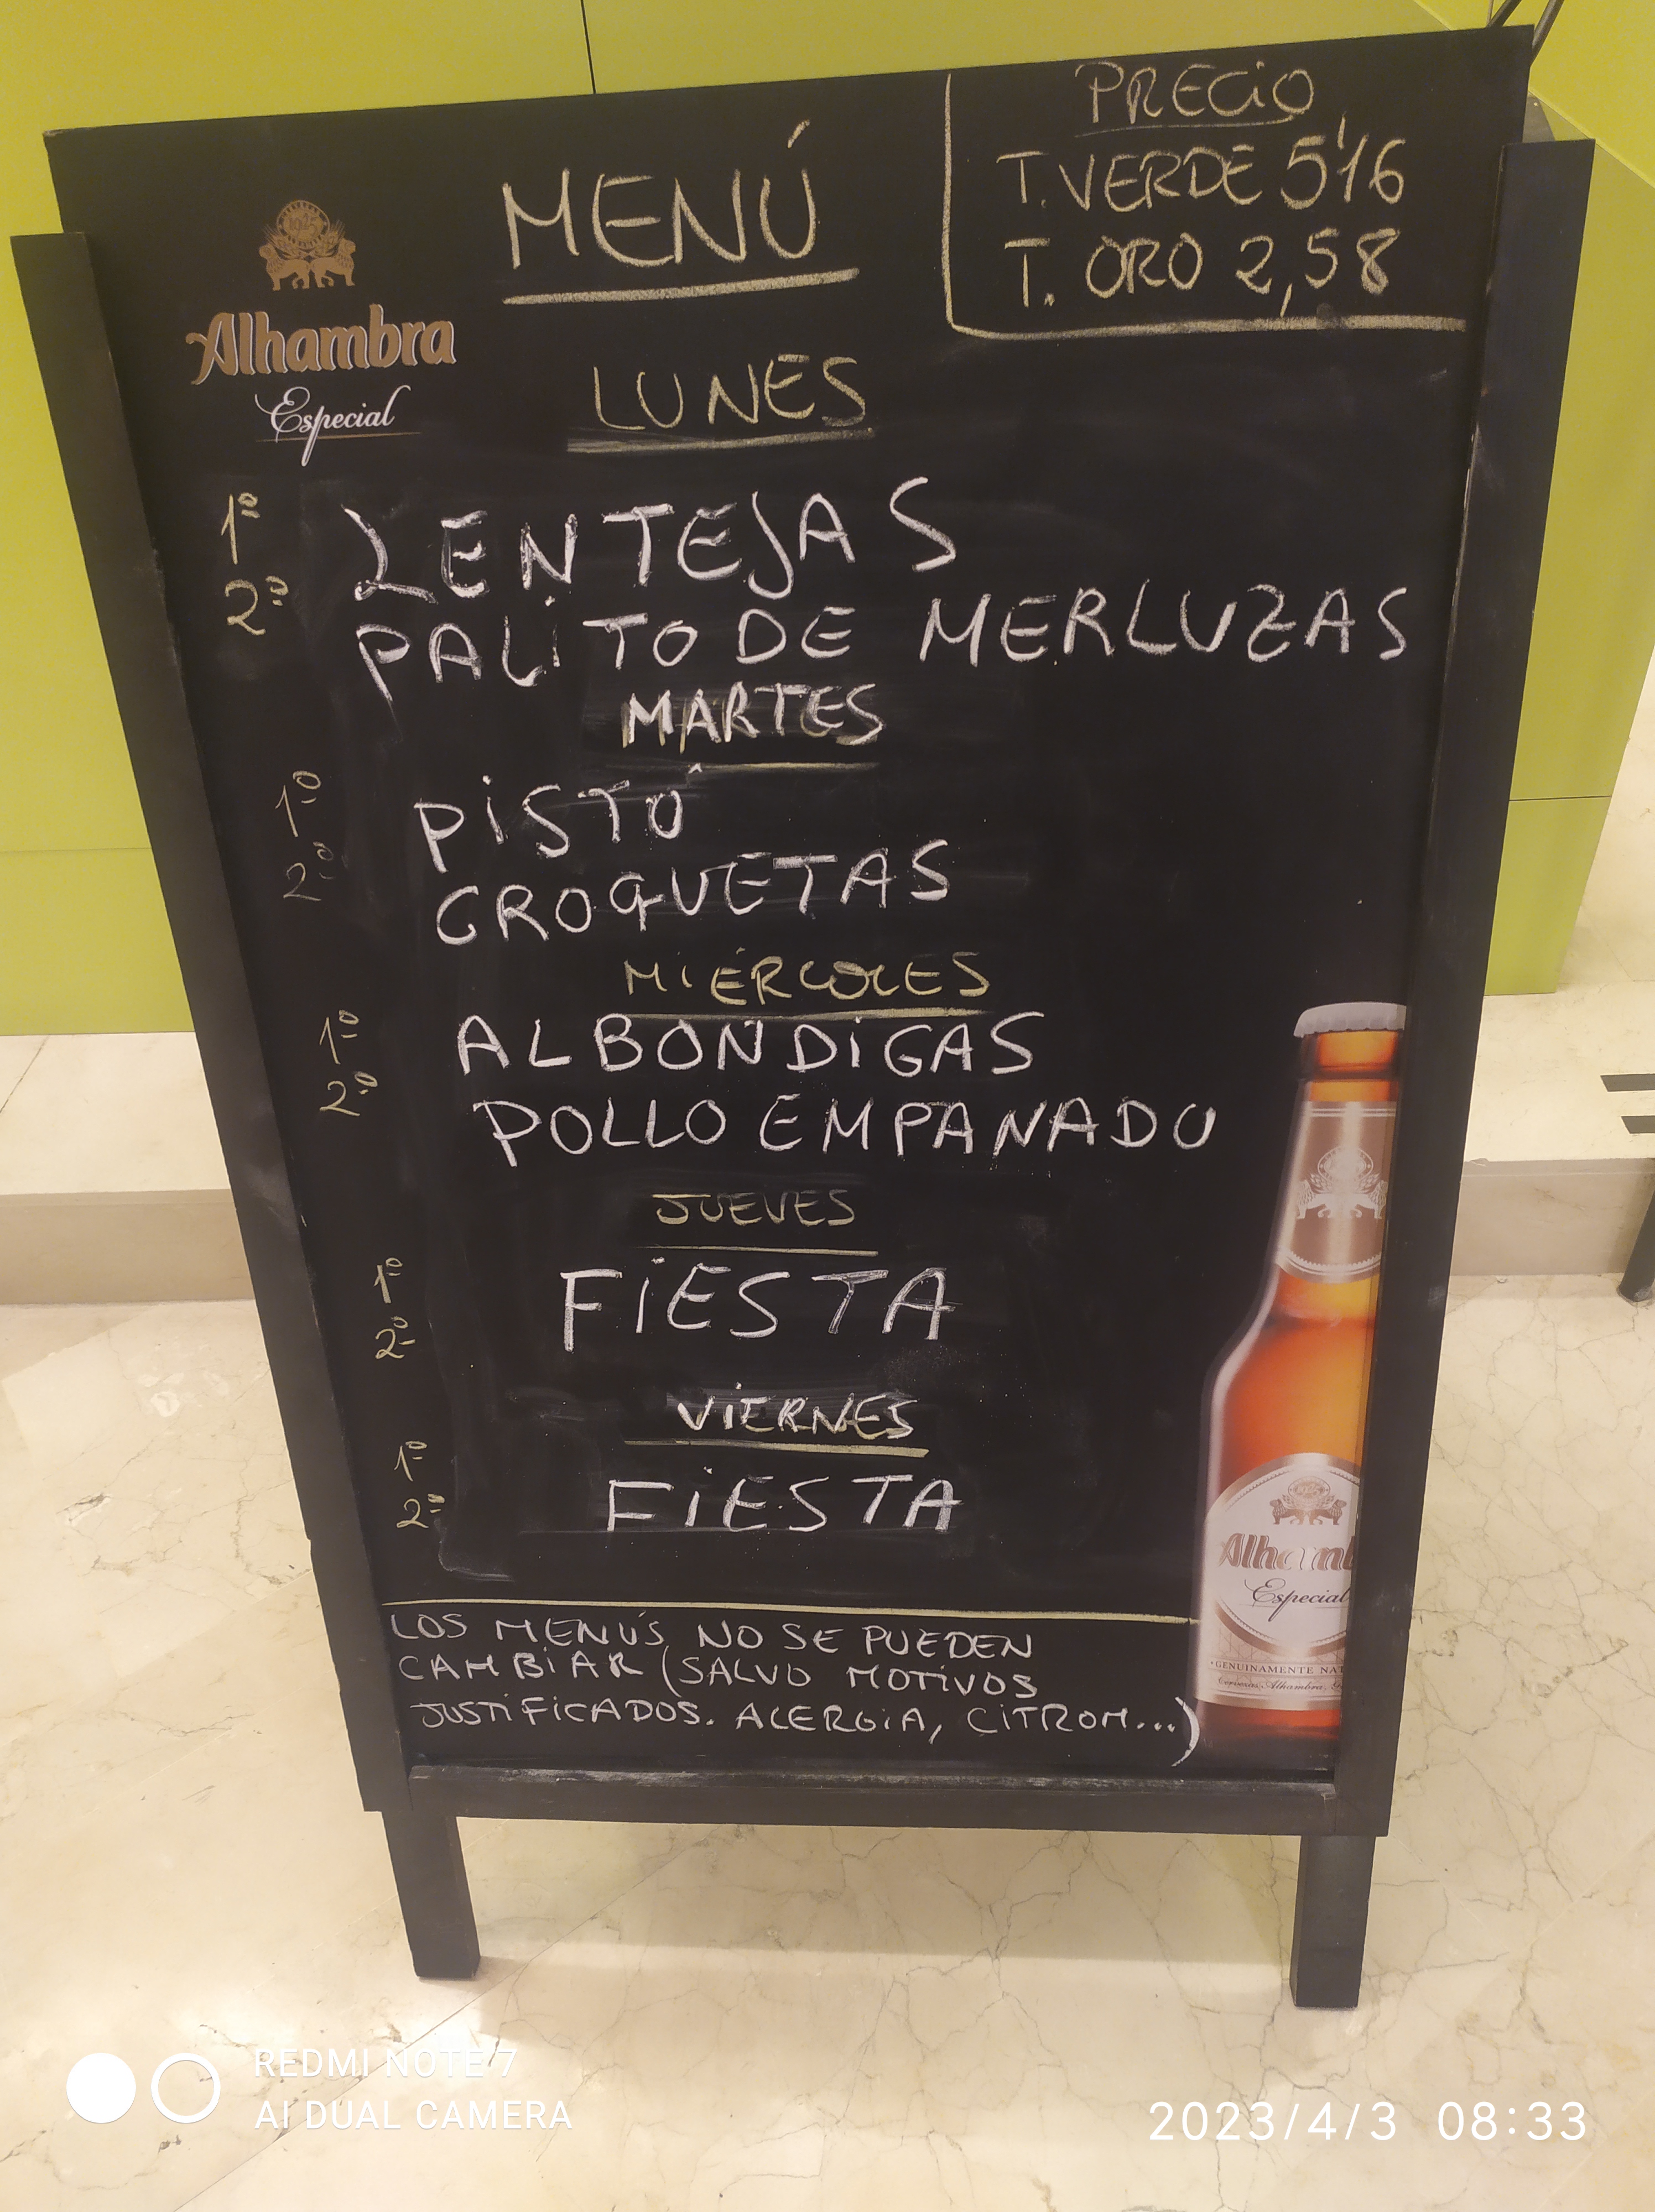 PRECIO
T. VERDE 5'16
T. ORO 2,58
MENÚ
Alhambra
Especial
LUNES
1º LENTEJAS
2º PALITO DE MERLUZAS
MARTES
1º PISTO
2º CROQUETAS
MIÉRCOLES
1º ALBONDIGAS
2º POLLO EMPANADO
JUEVES
1º FIESTA
2º
VIERNES
1º FIESTA
2º
LOS MENÚS NO SE PUEDEN
CAMBIAR (SALVO MOTIVOS
JUSTIFICADOS. ALERGIA, CITROM...)
Alhamb
Especial
GENUINAMENTE NAT
Cervezas Alhambra, G
REDMI NOTE 7
AI DUAL CAMERA
2023/4/3 08:33